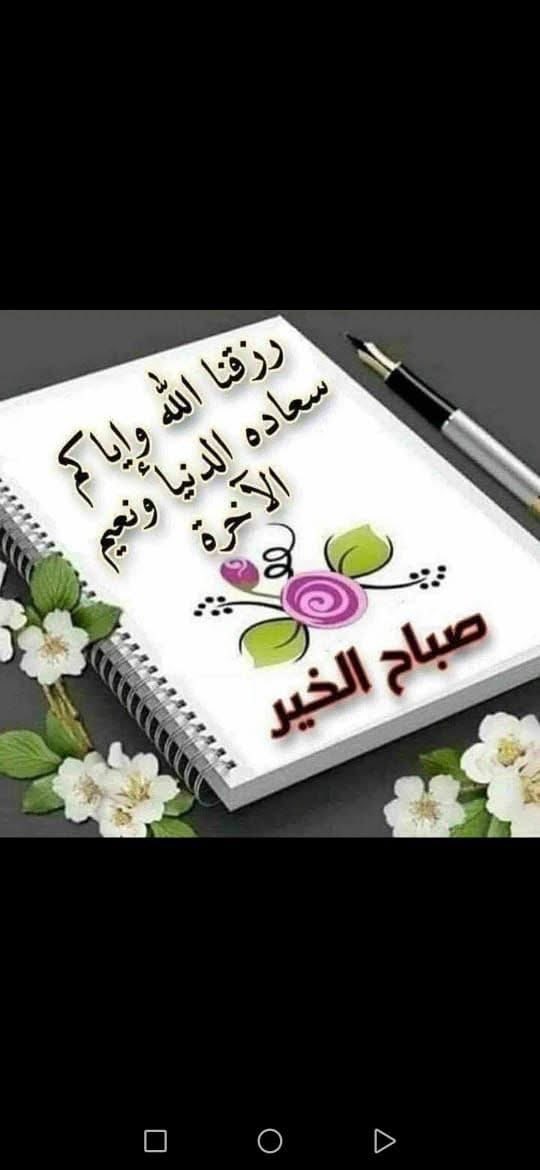 رزقنا الله وإياكم
سعاده الدنيا ونعيم
الآخرة
صباح الخير